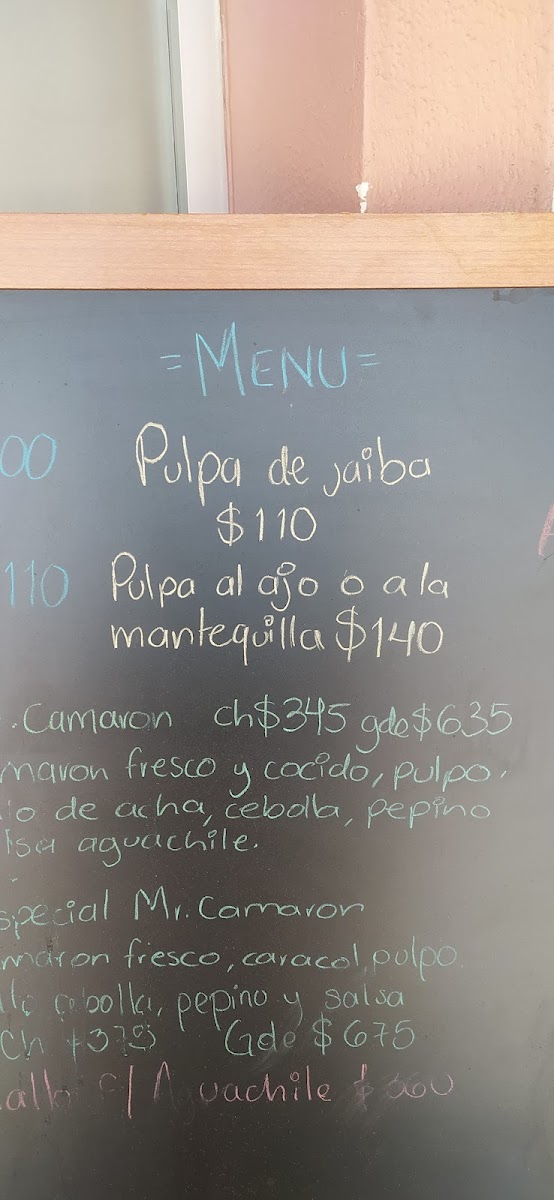 = MENU =
00 Pulpa de jaiba
$110
110 Pulpa al ajo o a la
mantequilla $140
. Camaron ch $345 gde $635
maron fresco y cocido, pulpo,
lo de acha, cebolla, pepino
lsa aguachile.
special Mr. Camaron
maron fresco, caracol, pulpo
cebolla, pepino y salsa
Ch Gde $675
Aguachile